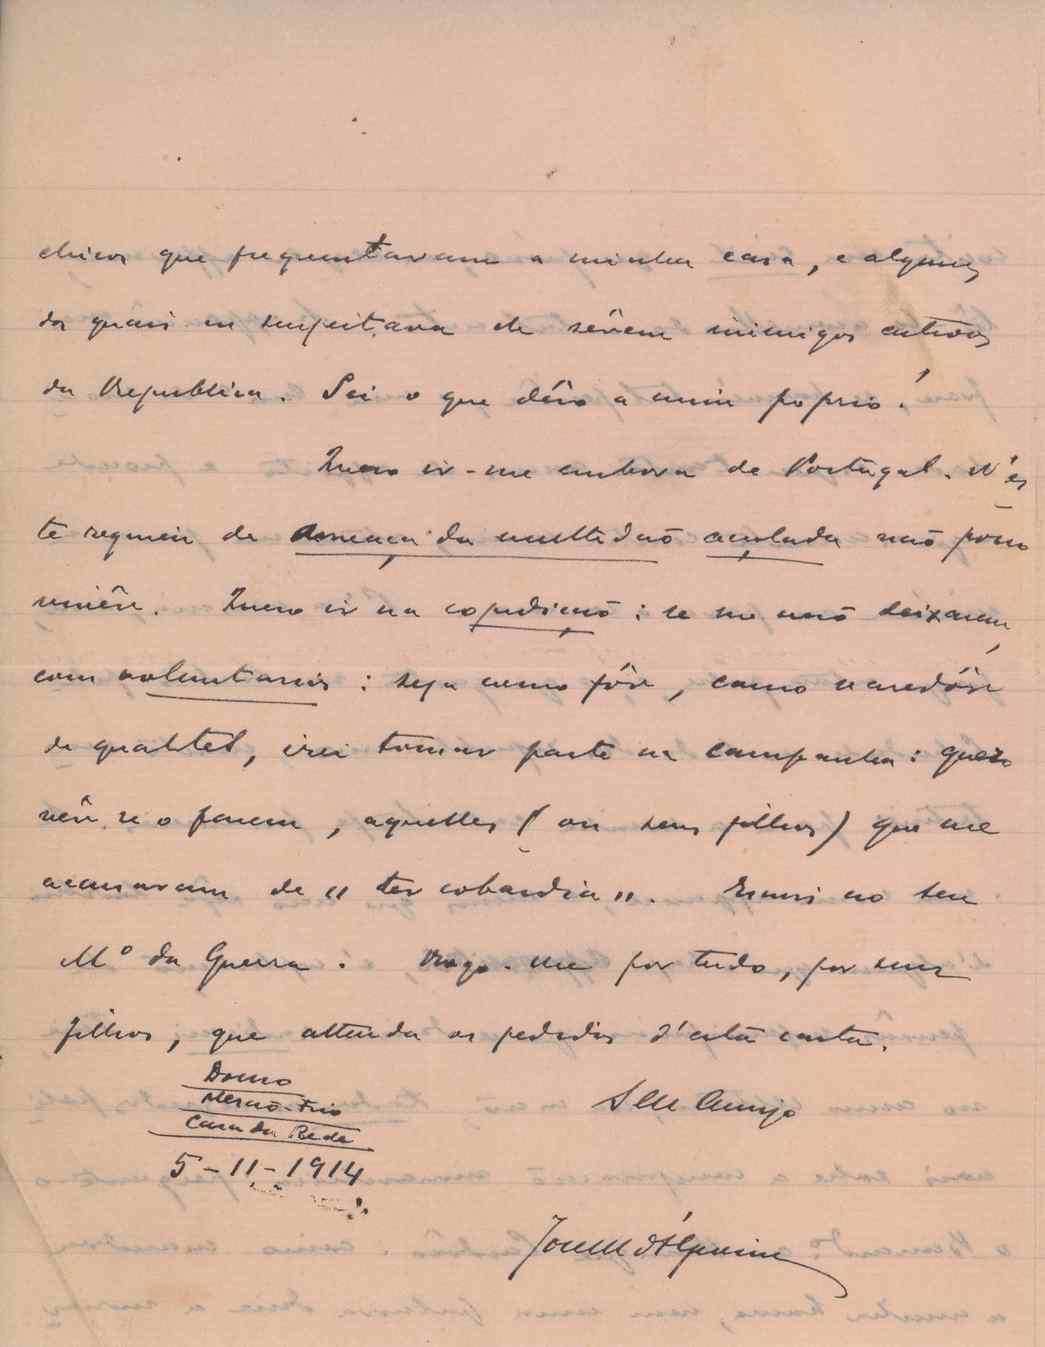 que frequentavam a minha casa, e alguns
dos quais eu suspeitava de sêrem inimigos
da Republica. Sei o que dêvo a mim proprio!
Quero ir-me embora de Portugal. N'és
te regimen de ameaça da multidaõ açulada naõ posso
vivêr. Quero ir na expediçaõ: se me naõ deixarem,
com voluntarios: seja como fôr, como
de qualitét, irei tomar parte na campanha: quero
vêr se o fazem, aquelles (ou seus filhos) que me
acusaram de "ter cobardia". no seu
M.º da Guerra. Rogo-me por tudo, por seus
filhos, que attenda os pedidos d'esta carta.
Douro
Mezaõ-Frio
Casa da Rede
Seu Amigo
5-11-1914
José d'Alpoim